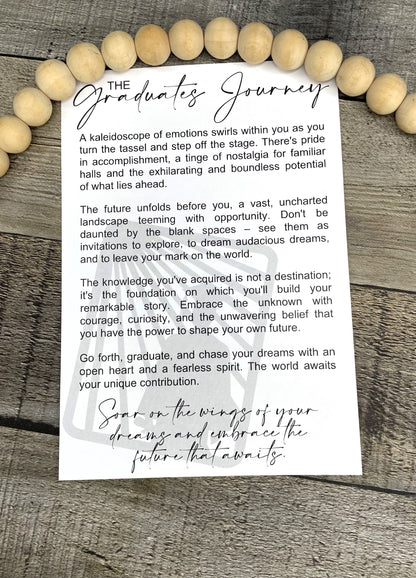 THE
Graduates Journey
A kaleidoscope of emotions swirls within you as you
turn the tassel and step off the stage. There's pride
in accomplishment, a tinge of nostalgia for familiar
halls and the exhilarating and boundless potential
of what lies ahead.
The future unfolds before you, a vast, uncharted
landscape teeming with opportunity. Don't be
daunted by the blank spaces – see them as
invitations to explore, to dream audacious dreams,
and to leave your mark on the world.
The knowledge you've acquired is not a destination;
it's the foundation on which you'll build your
remarkable story. Embrace the unknown with
courage, curiosity, and the unwavering belief that
you have the power to shape your own future.
Go forth, graduate, and chase your dreams with an
open heart and a fearless spirit. The world awaits
your unique contribution.
Soar on the wings of your
dreams and embrace the
future that awaits.